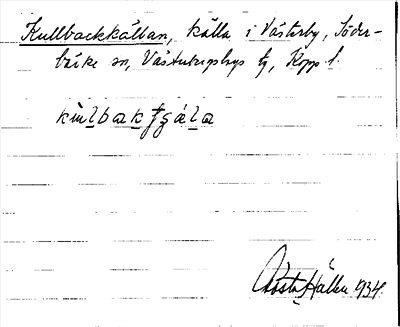 Kullbackkällan, källa i Västerby, Söder-
bärke sn, Västerbergslags tg, Kopp. l.
Gösta Hallén 1934.